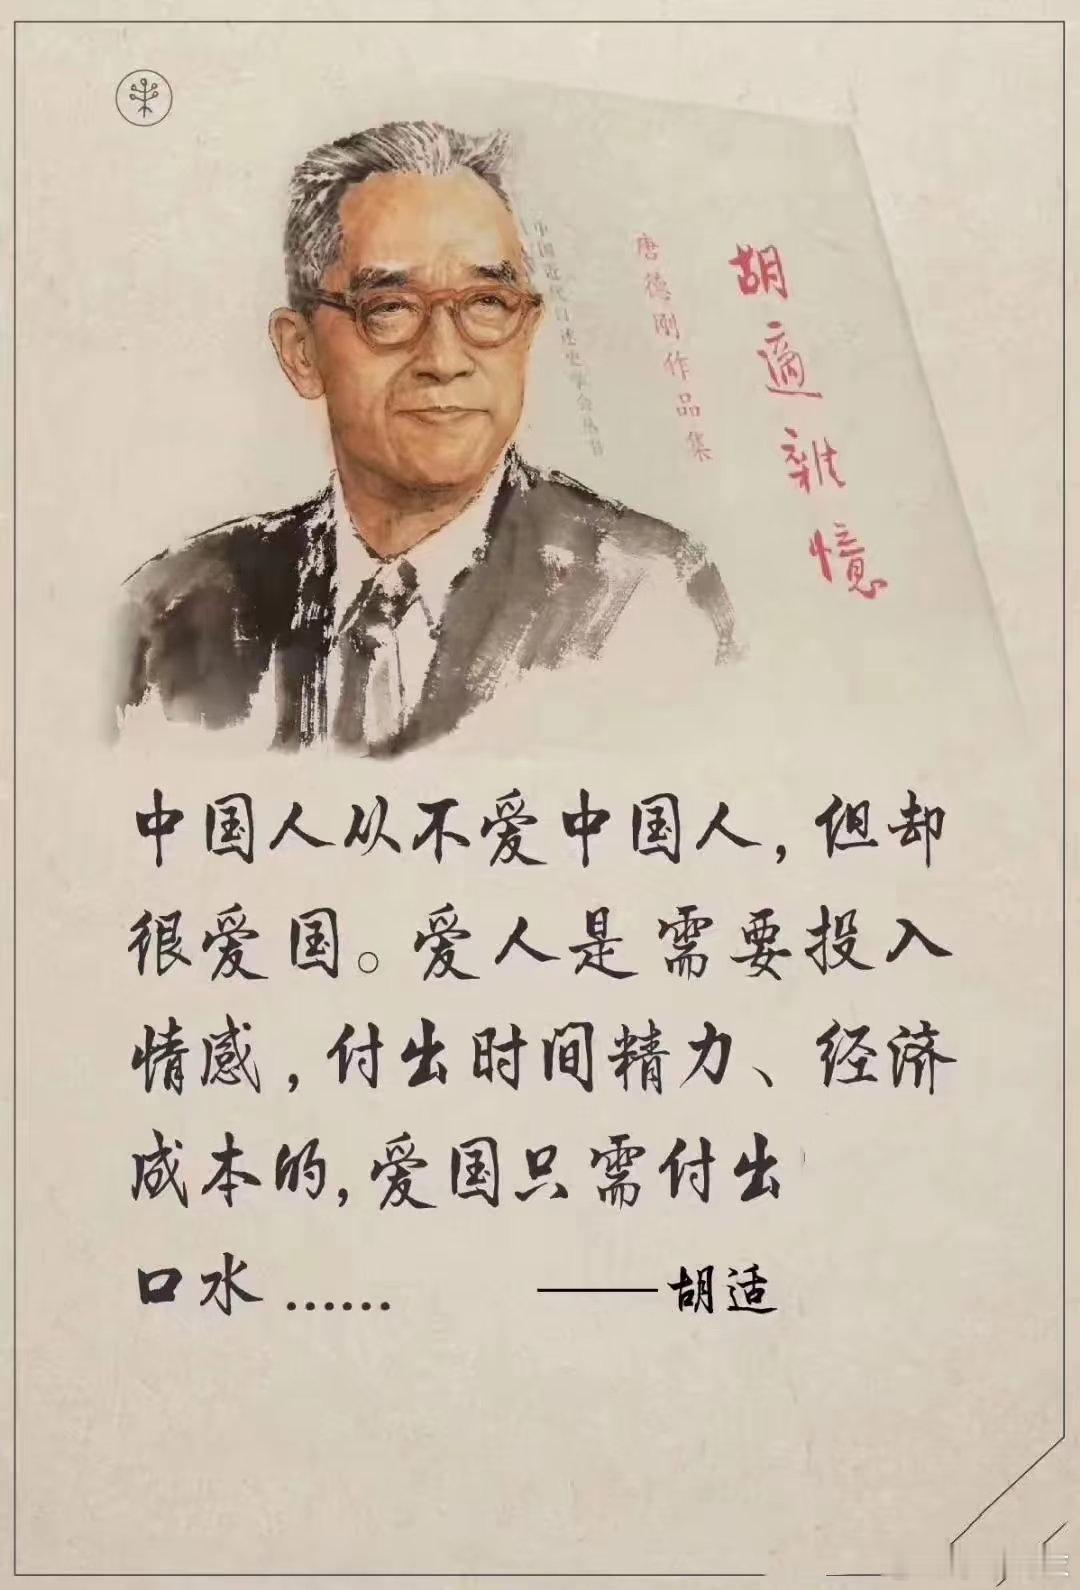 胡適雜憶
唐德刚作品集
中国近代口述史学会丛书
中国人从不爱中国人，但却
很爱国。爱人是需要投入
情感，付出时间精力、经济
成本的，爱国只需付出
口水……
——胡适